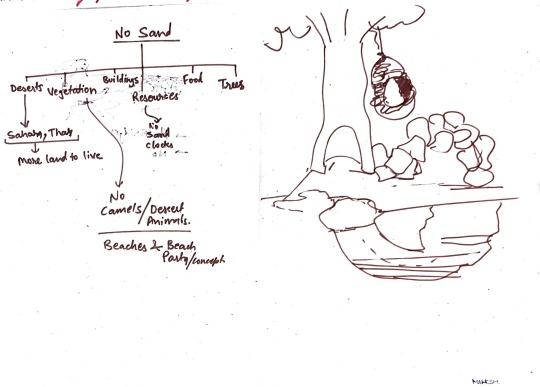 No Sand
Deserts Vegetation Buildings Resources Food Trees
Sahara, Thar
More land to live
No
Sand
clocks
No
Camels/Desert
Animals.
Beaches & Beach
Party/concept